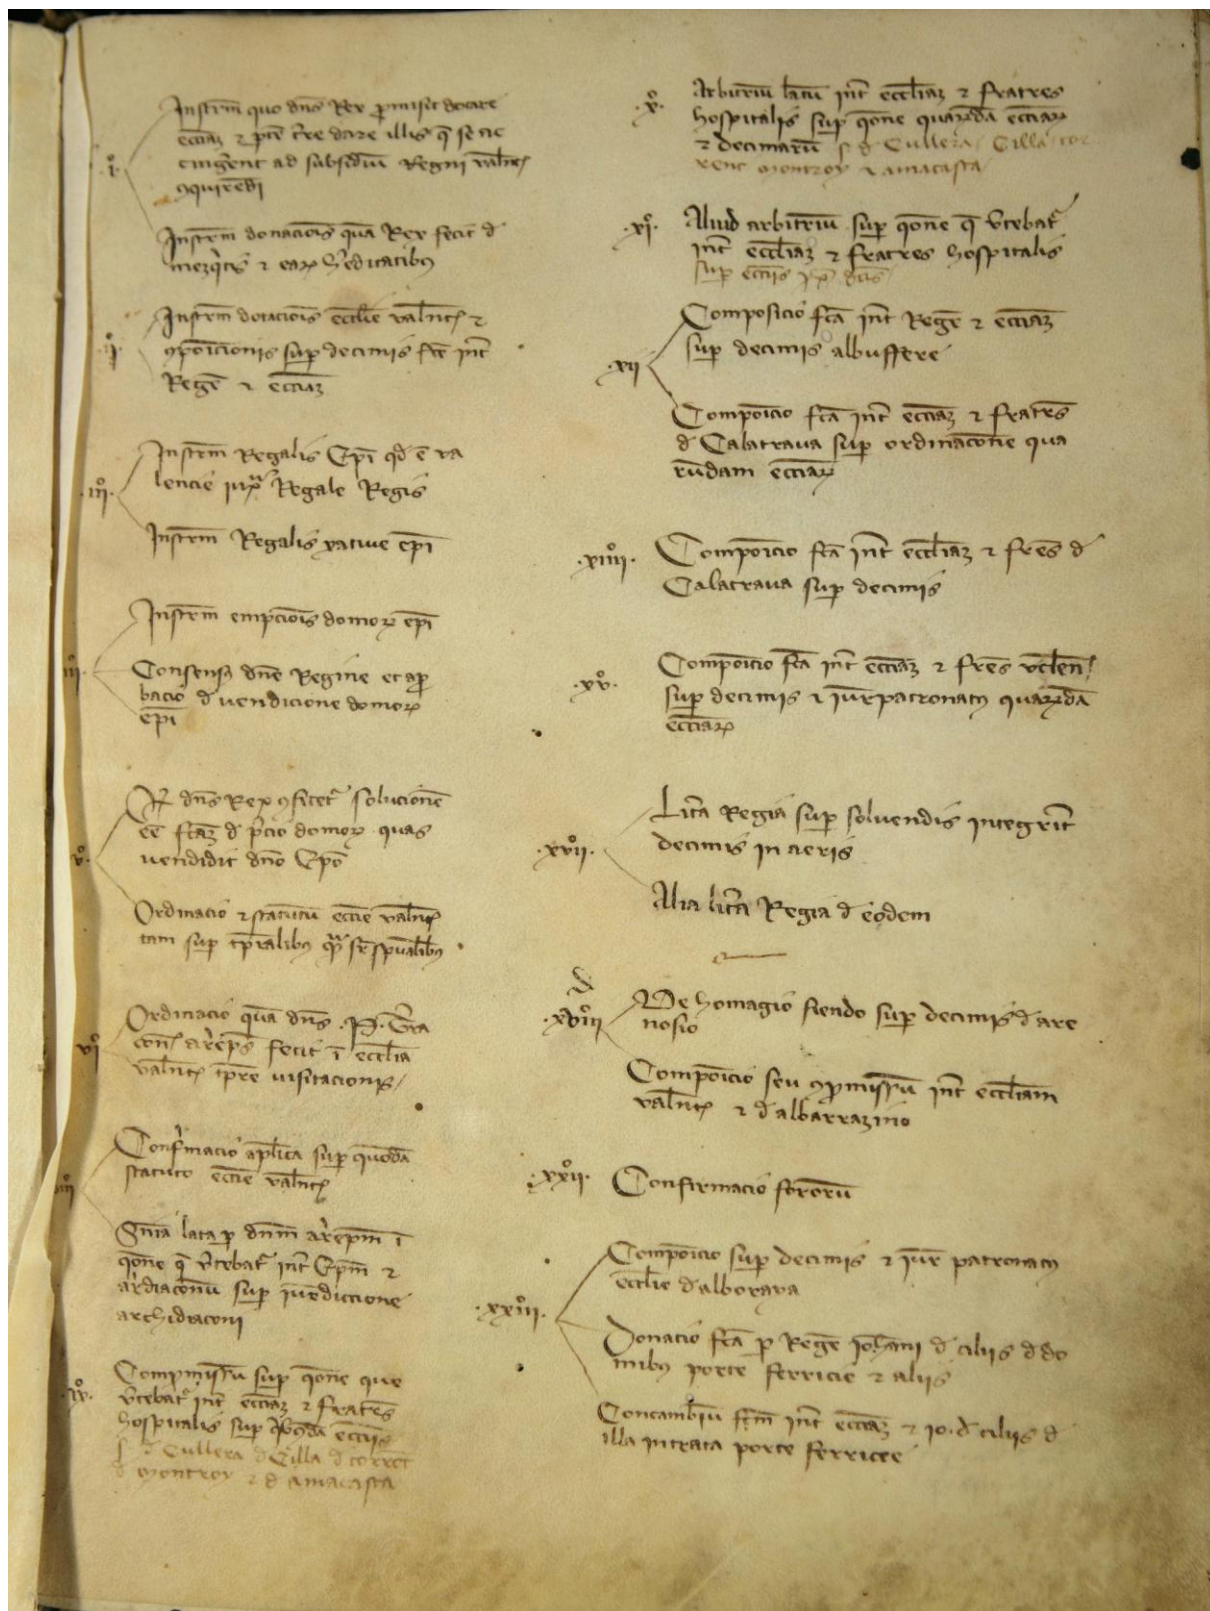 .i.
Instrm̄ quo dn̄s Rex ꝓmisit dotare
ecciaꝫ ⁊ dare illis
ad subsidiū Regni valn̄t
ꝯquirēdi
Instrm̄ donacionīs quā Rex fecit d̄
⁊ eaꝝ h̓editatibꝰ
.ii.
Instrm̄ dotacionīs ecclie valn̄t ⁊
ꝯpoīcionis suꝑ decimis fce int̄
Regē ⁊ ecciaꝫ
.iii.
Instrm̄ Regalis Epī qd̓ ē va
lencie iuxᵃ Regale Regis
Instrm̄ Regalis xatiue epī
.iiii.
Instrm̄ empcionīs domoꝝ epī
Consensꝰ dn̄e Regine et apꝓ
bacio d̄ vendicione domoꝝ
epī
.vº.
dn̄s Rex ꝯfitet᷑ solucionē
eē fcāꝫ d̄ p̓cio domoꝝ quas
uendidit dn̄o Epō
Ordinacio ⁊ statutū eccie valn̄t
tam suꝑ tp̄ralibꝰ qᵃ̄ spūalibꝰ
vi
Ordinacio quā dn̄s .P. t̓ra
con̄ ar̓epꝰ fecit ī ecclia
valn̄t tp̄re uisitacionis
Conf̓macio aplica suꝑ quodā
statuto eccie valn̄t
Snīa lata ꝑ dnm̄ ar̓epm̄ ī
qōne q̄ v̓tebat᷑ int̄ Epm̄ ⁊
ar̓diaconū suꝑ iur̄diccione
archidiaconi
.ix.
Compmissū suꝑ qōne que
v̓tebat᷑ int̄ ecciaꝫ ⁊ fratres
hospitalis suꝑ qⁱbꝰdā ecciis
s. d̄ Cullera d̄ Cilla d̄ torrēt
d̄ montroy ⁊ d̄ amacasta
.xº.
Arbitriū latū int̄ eccliaꝫ ⁊ fratres
hospitalis suꝑ qōne quarūdā ecciaꝝ
⁊ decimarū s. d̄ Cullera Cilla tor
rent montroy ⁊ amacasta
.xiº.
Aliud arbitriū suꝑ qōne q̄ v̓tebat᷑
int̄ eccliaꝫ ⁊ fratres hospitalis
suꝑ ecciis
.xii
Composicio fcā int̄ Regē ⁊ ecciaꝫ
suꝑ decimis albuffere
Compoīcio fcā int̄ ecciaꝫ ⁊ fratrēs
d̄ Calatraua suꝑ ordinacōne qua
rūdam ecciaꝝ
.xiiiiº.
Compoīcio fcā int̄ eccliaꝫ ⁊ frēs d̄
Calatraua suꝑ decimis
.xvº.
Compoīcio fcā int̄ ecciaꝫ ⁊ frēs vclen̄
suꝑ decimis ⁊ iur̄patronatꝰ quarūdā
ecciaꝝ
.xvºii.
Lit̄a Regia suꝑ soluendis integrit̄
decimis in aeris
Alia lit̄a Regia d̄ eodem
.xvºiii
De homagio fiendo suꝑ decimis d̄ are
nosio
Compoīcio seu ꝯpromissū int̄ eccliam
valn̄t ⁊ d̄ albarrazino
.xxºii.
Confirmacio fororū
.xxiiiº.
Compoīcio suꝑ decimis ⁊ iur̄ patronatꝰ
ecclie d̄ alboraya
Donacio fcā ꝑ Regē Iohāni d̄ ciliis d̄ do
mibꝰ porte ferricie ⁊ aliis
Concambiū fcm̄ int̄ ecciaꝫ ⁊ io. d̄ ciliis d̄
illa intrata porte ferricie